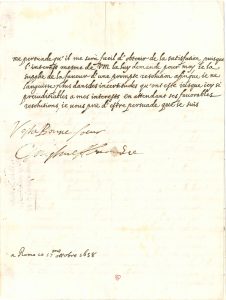 me persuade qu'il me sera facil d'obtenir de la satisfaire, puisque
l'interest mesme de VM la luy demande pour moy. je la
supplie de la faveur d'une prompte resolution afin que je ne
languisse plus dans des incertitudes qui ont esté jusque icy si
prejudiciables a mes interests en attendant ses favorables
resolutions, je vous prie d'estre persuadé que je suis
Vostre Bonne soeur
Christine Alexandre
a Rome ce 17me octobre 1658